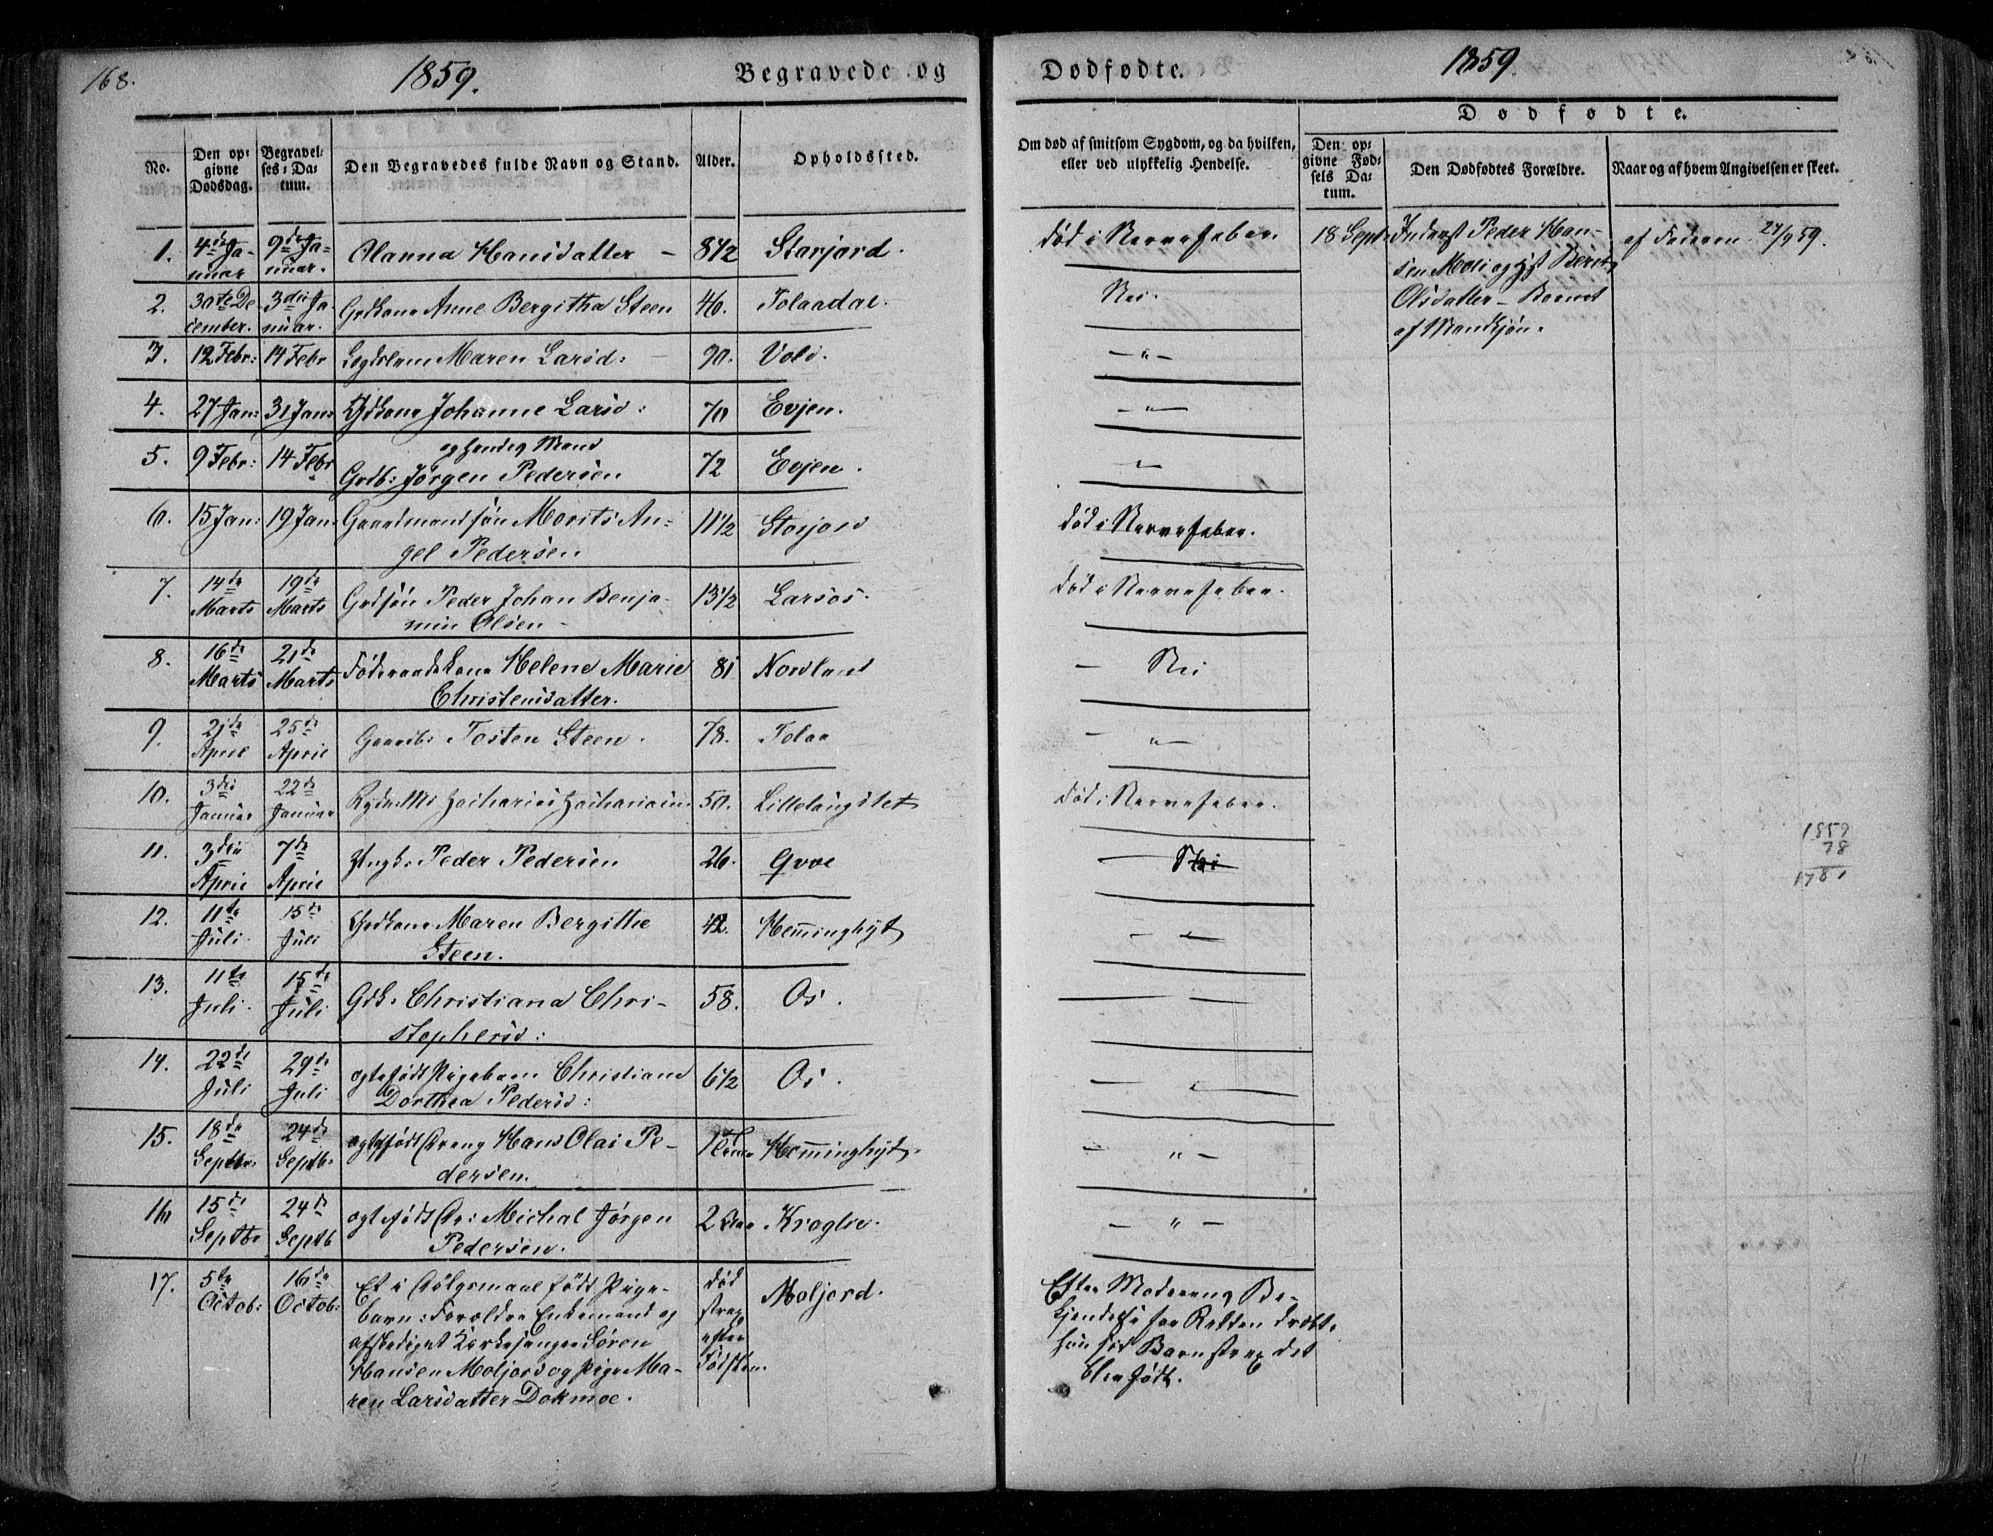 168.
1859.
Begravede og
Dødfødte.
1859
No.
Den opgivne Dødsdag.
Begravelses-Datum.
Den Begravedes fulde Navn og Stand.
Alder.
Opholdssted.
Om død af smitsom Sygdom, og da hvilken, eller ved ulykkelig Hendelse.
Dødfødte.
Den opgivne Fødsels Datum.
Den Dødfødtes Forældre.
Naar og af hvem Angivelsen er skeet.
1. 4de Januar 9de Januar. Hanna Hansdatter – 8 1/2 Storjord. død i Nervefeber.
18 Sept: Inderst Peder Hansen Moli og Berit Olsdatter – Barnet af Mandkjøn.
af Faderen 27/9 59.
2. 30te December. 3die Januar. Gdkone Anne Bergitha Steen 46. Tolaadal. Nei.
3. 12 Febr: 14 Febr Lægdslem Maren Larsd: – 90. Vold. – " –
4. 27 Jan: 31 Jan: Gdkone Johanne Larsd: 70 Evjen. – " –
5. 9 Febr: 14 Febr og hendes Mand
Gdb: Jørgen Pedersen 72 Evjen. "
6. 15 Jan: 19 Jan: Gaardmandssøn Morits Angel Pedersen 11 1/2 Storjord død i Nervefeber.
7. 14de Marts 19de Marts Gdsøn Peder Johan Benjamin Olsen – 13 1/2 Larsos. død i Nervefeber.
8. 16de Marts 21de Marts Føderaadskone Helene Marie Christensdatter. 81 Nordland – Nei
9. 21de April 25de April Gaardb: Tosten Steen. 78. Tolaa – " –
10. 3die Januar 22de Januar Zacharias Zachariasen 50. Lillelangstet død i Nervefeber.
11. 3die April 7de April Ungk: Peder Pedersen 26. Qvoe – Nei
1859
78
1781
12. 11te Juli. 15de Juli Gdkone Maren Bergithe Steen. 42. Hemminghyt – " –
13. 11te Juli. 15de Juli Gdk: Christiana Christophersd: 58. Os.
14. 22de Juli 29de Juli ægtefødt Pigebarn Christiane Dorthea Pedersd: 6 1/2 Os. – "
15. 18de Septbr. 24de Septb: ægtefødt Dreng Hans Olai Pedersen. Hemminghyt. – " –
16 15de Septbr 24de Septb ægtefødt Dr: Michal Jørgen Pedersen. 2 Kroglie. – " –
17. 5te Octob: 16de Octob: Et i Dølgsmaal født Pigebarn: Forældre Enkemand og
afskediget Kirkesanger Søren
Hansen Moljord og Pige Maren Larsdatter Dokmoe.
død strax efter Fødslen. Moljord.
Efter Moderens Bekjendelse for Retten dræbte
hun sit Barn strax det
blev født.